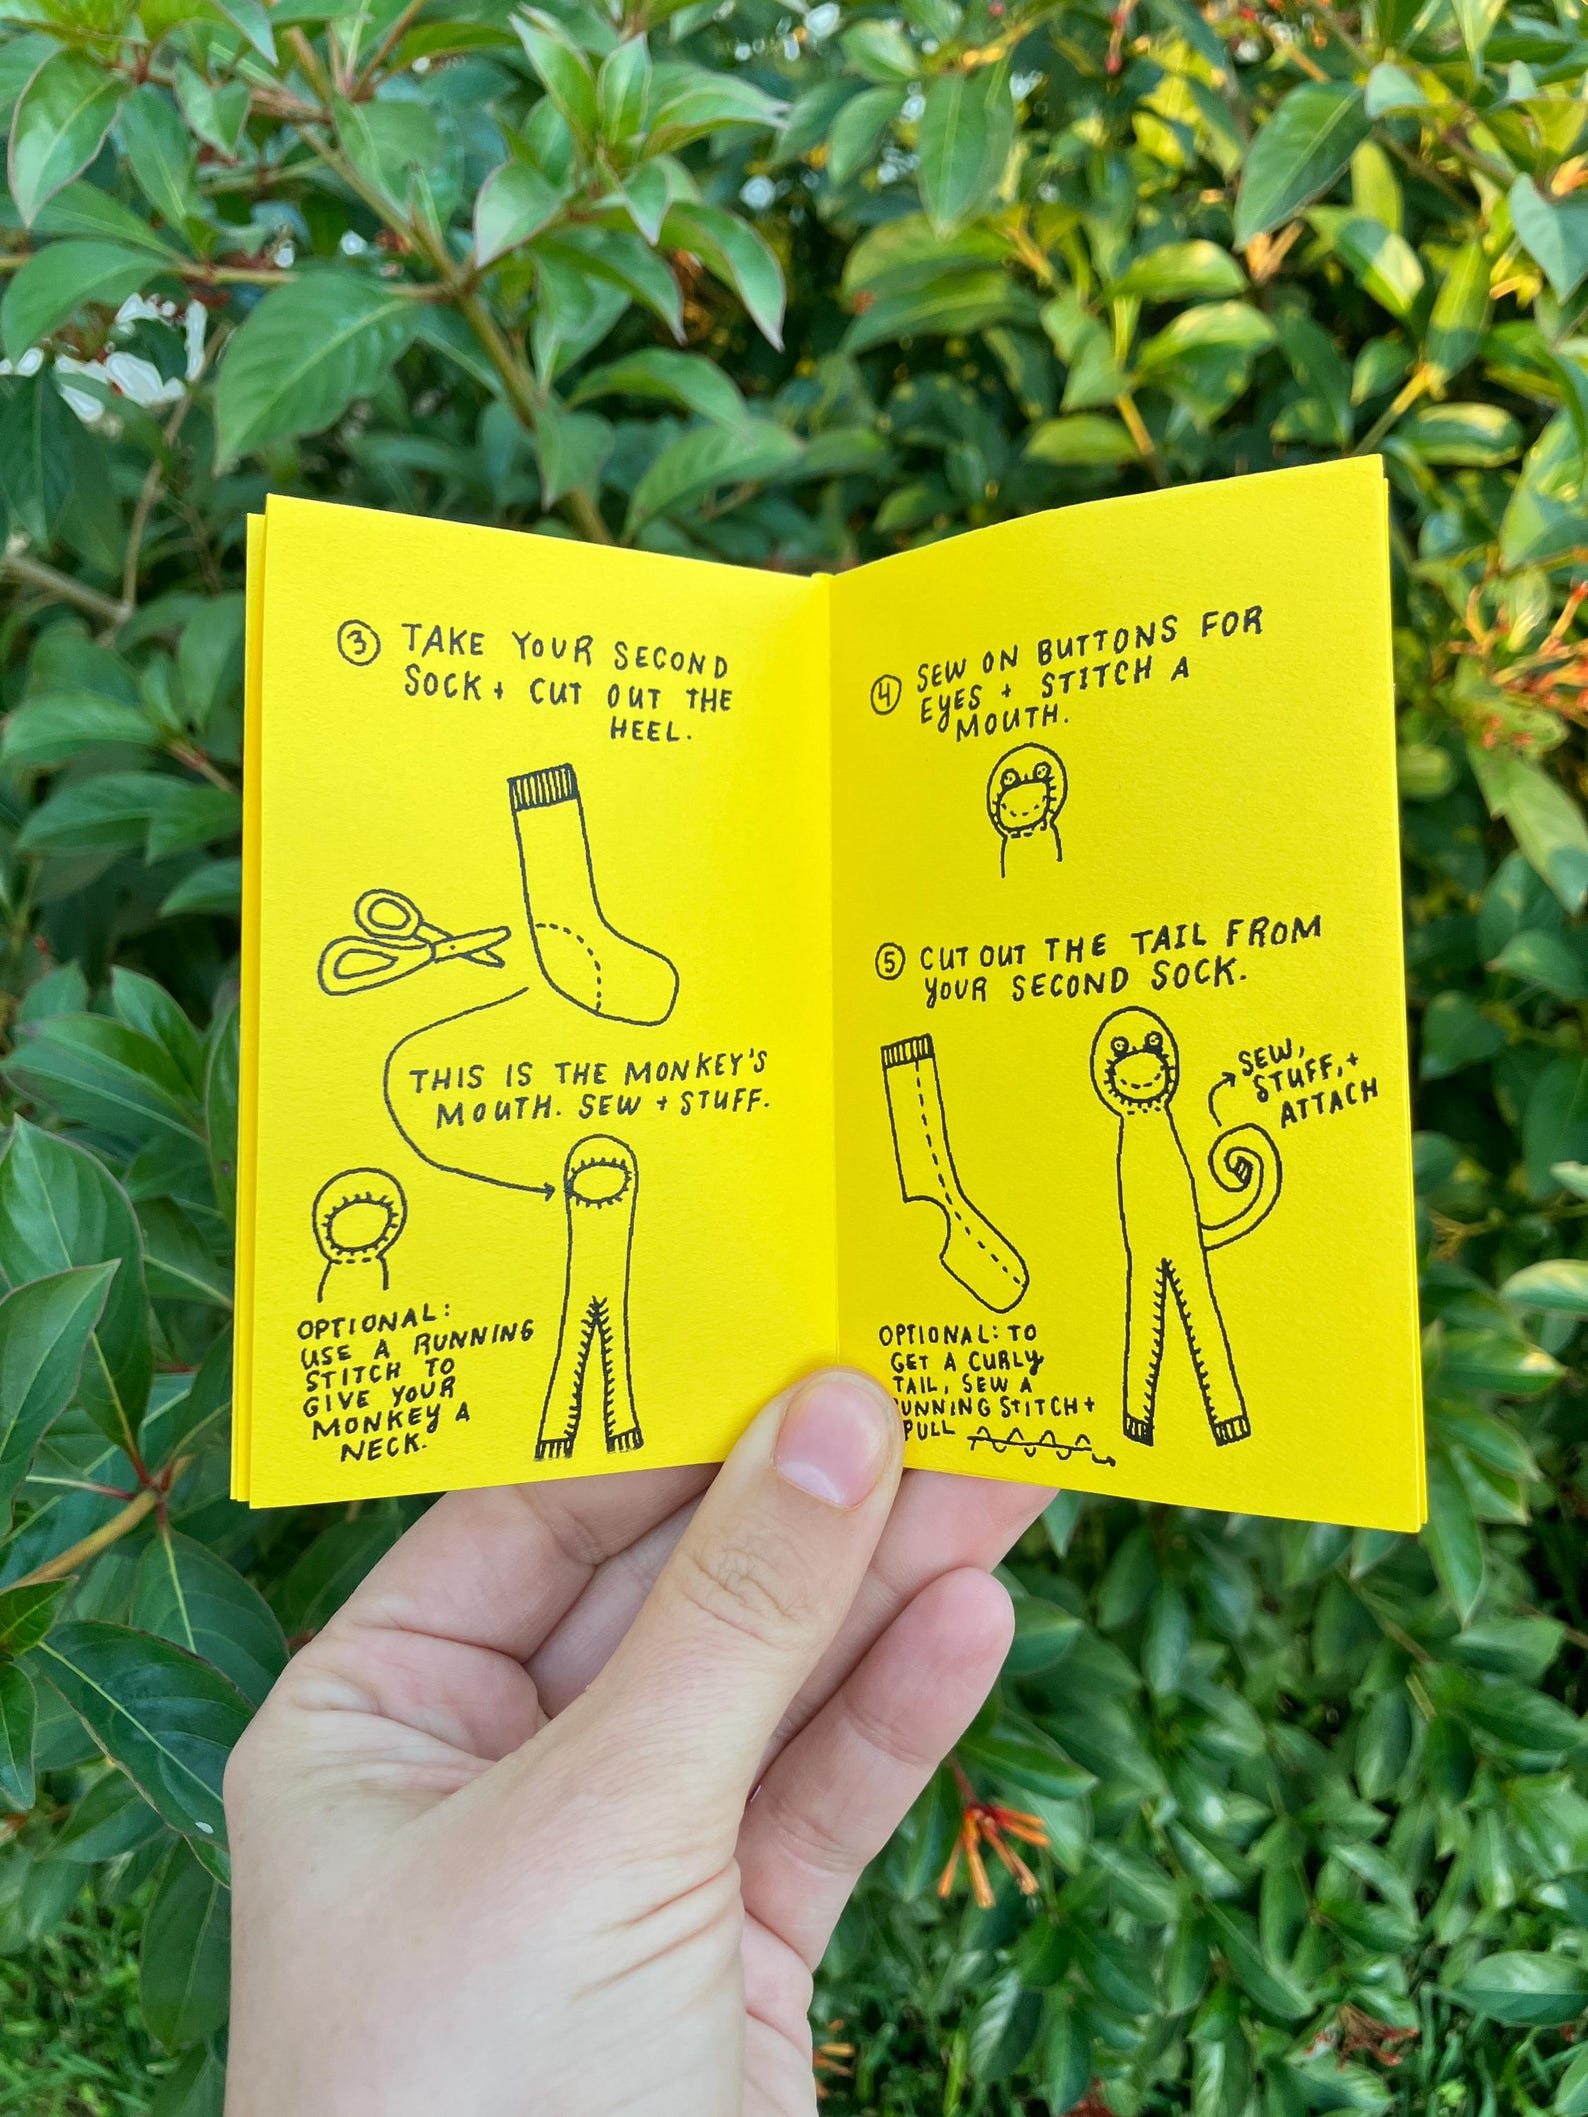 ③ TAKE YOUR SECOND
SOCK + CUT OUT THE
HEEL.
THIS IS THE MONKEY'S
MOUTH. SEW + STUFF.
OPTIONAL:
USE A RUNNING
STITCH TO
GIVE YOUR
MONKEY A
NECK.
④ SEW ON BUTTONS FOR
EYES + STITCH A
MOUTH.
⑤ CUT OUT THE TAIL FROM
YOUR SECOND SOCK.
SEW,
STUFF, +
ATTACH
OPTIONAL: TO
GET A CURLY
TAIL, SEW A
UNNING STITCH +
PULL